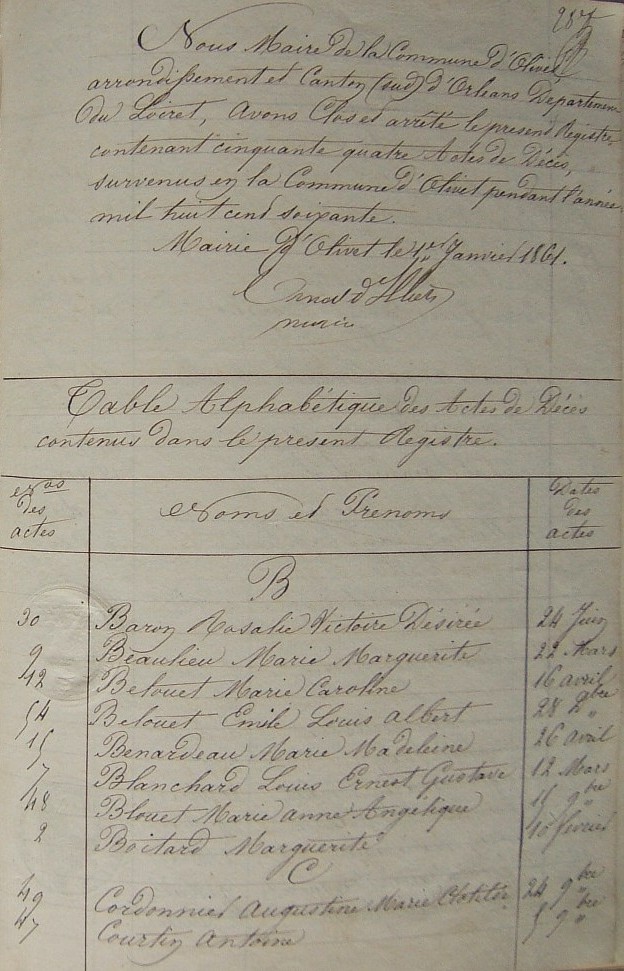 287
Nous Maire de la Commune d'Olivet
arrondissement et Canton (sud) d'Orleans Departement
du Loiret, Avons Clos et arrêté le present Registre
contenant cinquante quatre Actes de Décès,
survenus en la Commune d'Olivet pendant l'année
mil huit cent soixante.
Mairie d'Olivet le 1er Janvier 1861.
maire
Table Alphabétique des Actes de Décès
contenus dans le present Registre.
Nos des actes Noms et Prenoms Dates des actes
B
30 Baron Rosalie Victoire Désirée 24 Juin
9 Beaulieu Marie Marguerite 22 Mars
12 Belouet Marie Caroline 16 avril
54 Belouet Emile Louis Albert 28 Xbre
15 Benardeau Marie Madeleine 26 avril
7 Blanchard Louis Ernest Gustave 12 Mars
48 Blouet Marie anne Angélique 15 9bre
2 Boitard Marguerite 10 fevrier
C
49 Cordonnier Augustine Marie Clotilde 24 9bre
47 Courtin Antoine 5 9bre